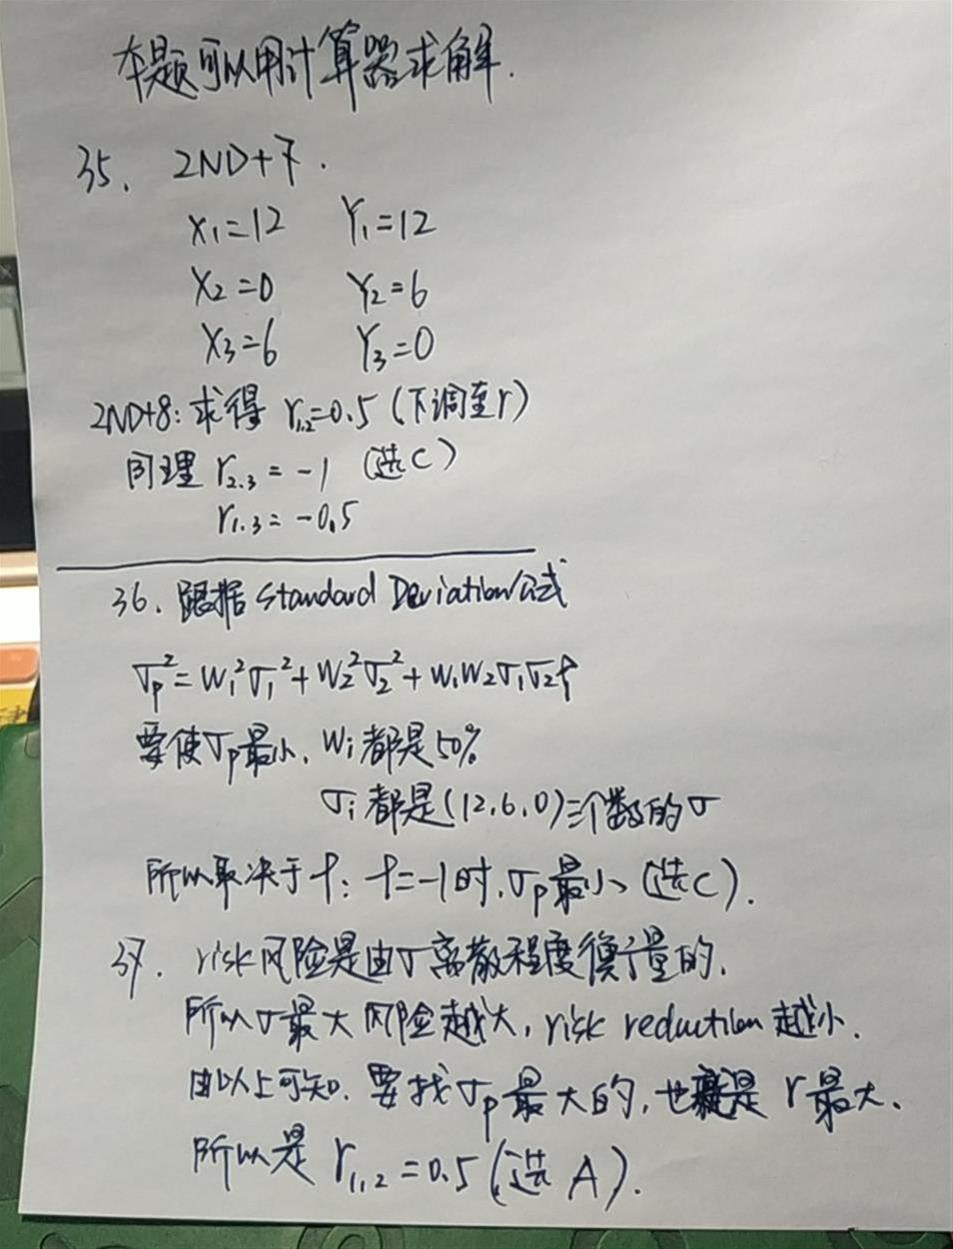 本题可以用计算器求解.
35. 2ND+7.
X₁=12 Y₁=12
X₂=0 Y₂=6
X₃=6 Y₃=0
2ND+8: 求得 r₁,₂=0.5 (下调至r)
同理 r₂.₃ = -1 (选C)
r₁.₃ = -0.5
36. 跟据 Standard Deviation公式
σp²= W₁²σ₁²+W₂²σ₂²+W₁W₂σ₁σ₂ρ
要使σp最小, Wi都是50%
σi都是(12.6.0)三个数的σ
所以取决于ρ: ρ=-1时,σp最小 (选C).
37. risk风险是由σ离散程度衡量的,
所以σ最大 风险越大, risk reduction 越小.
由以上可知, 要找σp最大的, 也就是 r最大.
所以是 r₁,₂ = 0.5 (选 A).